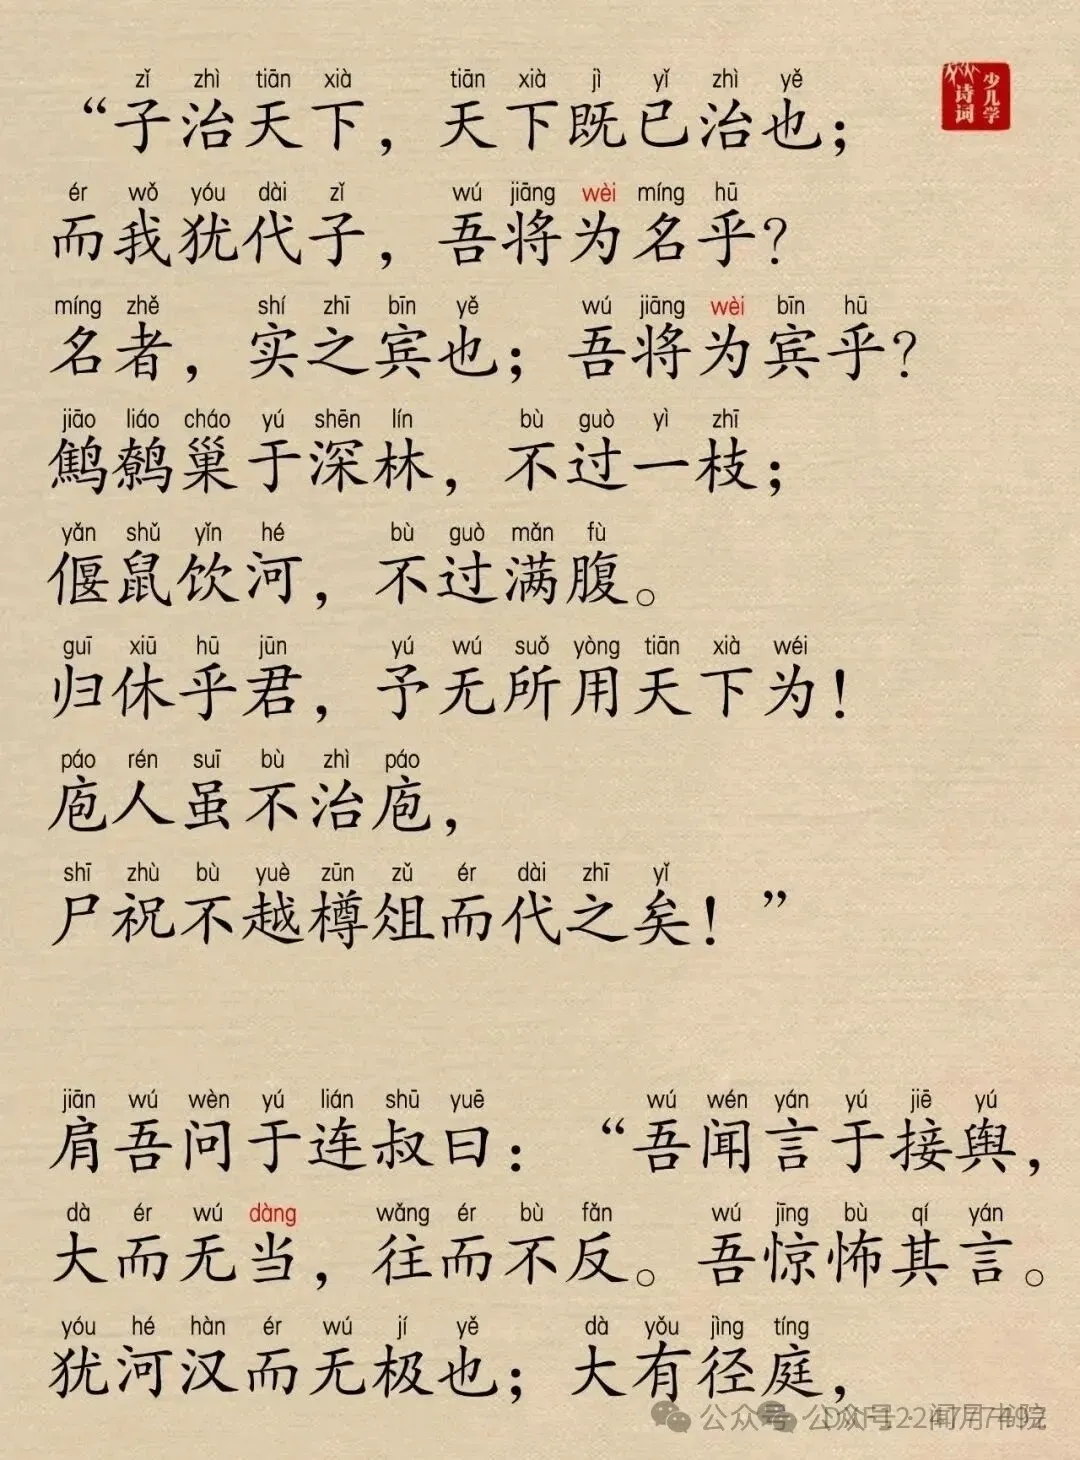 少儿学
诗词
zǐ zhì tiān xià tiān xià jì yǐ zhì yě
“子治天下，天下既已治也；
ér wǒ yóu dài zǐ wú jiāng wèi míng hū
而我犹代子，吾将为名乎？
míng zhě shí zhī bīn yě wú jiāng wèi bīn hū
名者，实之宾也；吾将为宾乎？
jiāo liáo cháo yú shēn lín bù guò yì zhī
鹪鹩巢于深林，不过一枝；
yǎn shǔ yǐn hé bù guò mǎn fù
偃鼠饮河，不过满腹。
guī xiū hū jūn yú wú suǒ yòng tiān xià wéi
归休乎君，予无所用天下为！
páo rén suī bù zhì páo
庖人虽不治庖，
shī zhù bù yuè zūn zǔ ér dài zhī yǐ
尸祝不越樽俎而代之矣！”
jiān wú wèn yú lián shū yuē wú wén yán yú jiē yú
肩吾问于连叔曰：“吾闻言于接舆，
dà ér wú dàng wǎng ér bù fǎn wú jīng bù qí yán
大而无当，往而不反。吾惊怖其言。
yóu hé hàn ér wú jí yě dà yǒu jìng tíng
犹河汉而无极也；大有径庭，
公众号 公众号